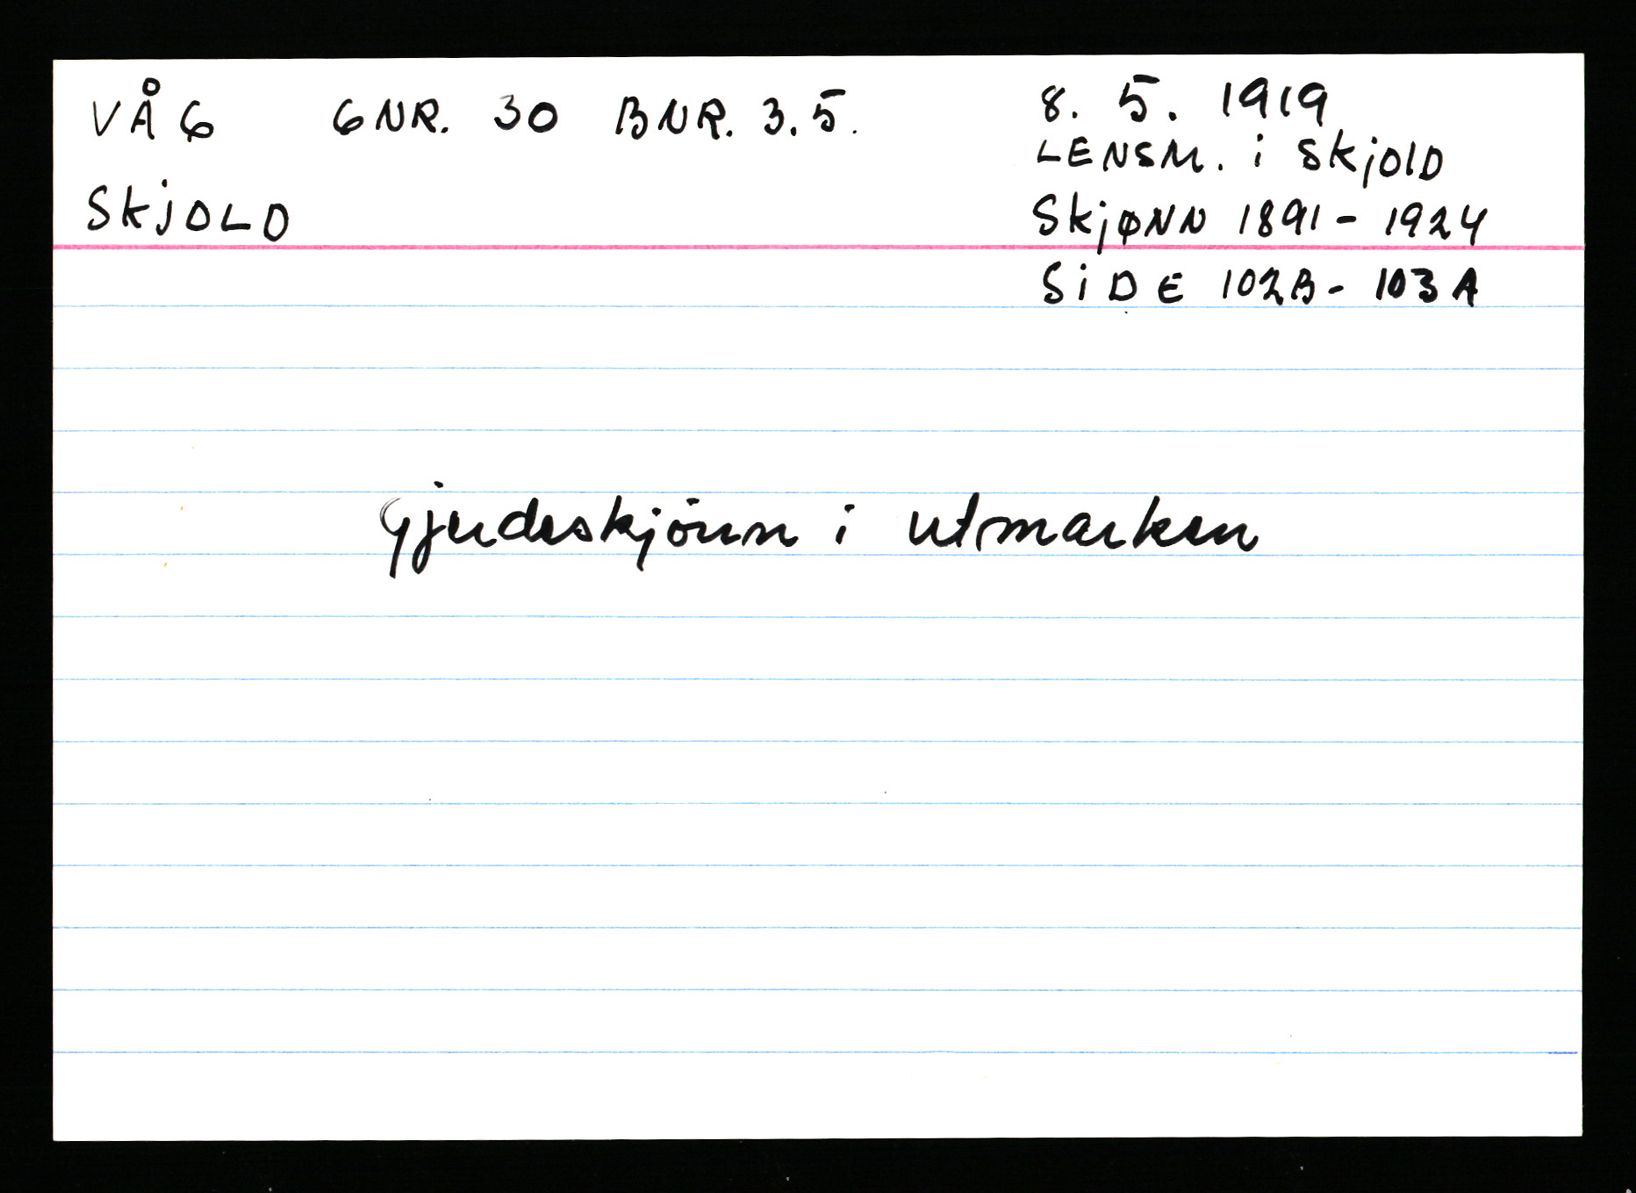 VÅG GNR. 30 BNR. 3.5.
SKJOLD
8. 5. 1919
LENSM. i SKJOLD
SKJØNN 1891 - 1924
SIDE 102B - 103A
Gjerdeskjönn i utmarken